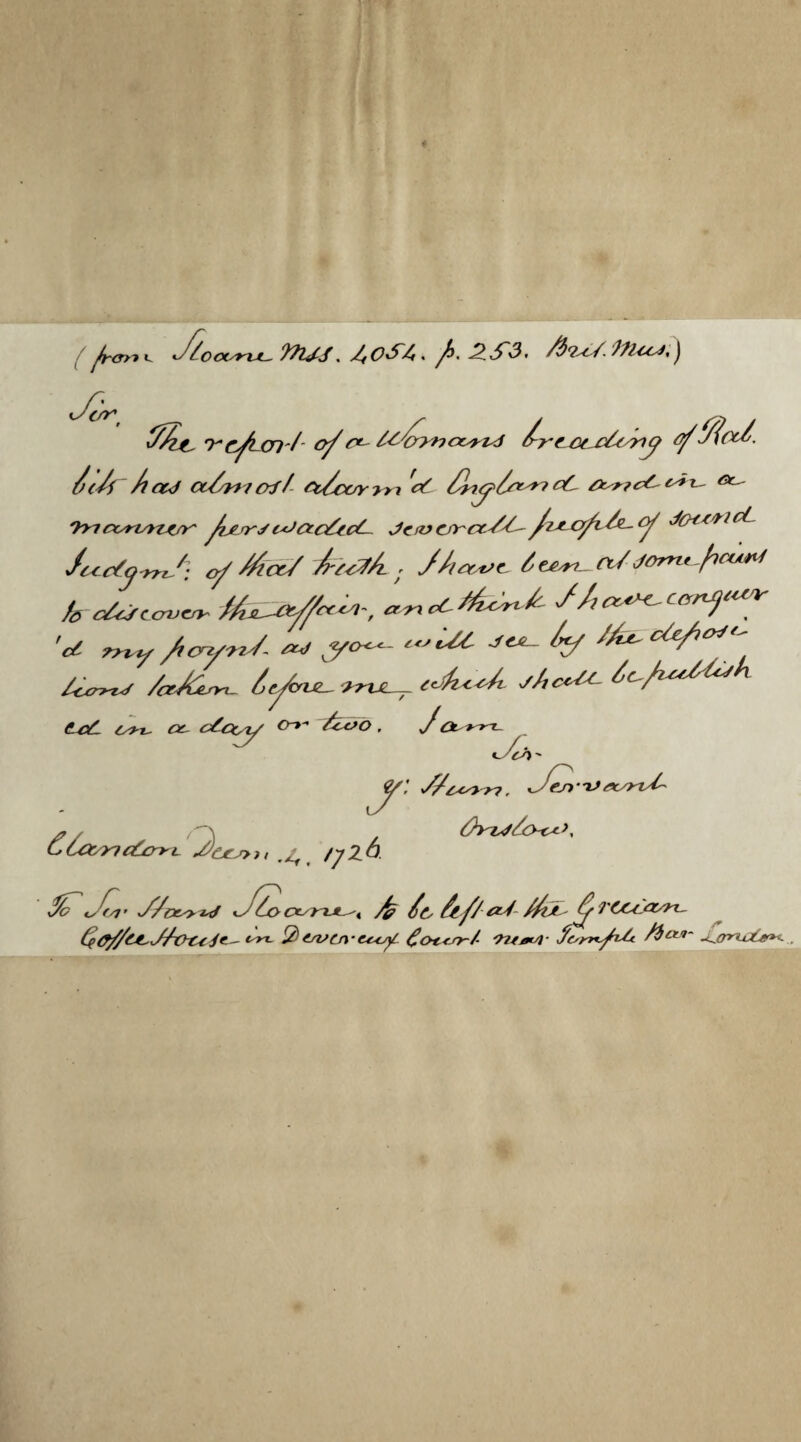 (from Sloane MSS. 4054. p. 253. Brit. Mus.)
Sir,
The report of a Woman's breeding of Rab.
bits has almost alarm'd England and in a
manner perswaded severall people of sound
Judgmt: of that truth. I have been at some pains
to discover the affair, and think I have conquer
'd my point as you will see by the deposi-
tions taken before me, which shall be publish
ed in a day or two. I am
Sir
Yr: Humm. Servant
Onslow,
Clandon Decem .4, 1726.
To Sir Hans Sloane, to be left at the Grecian
Coffee House in Devereux Court near Temple Bar London.